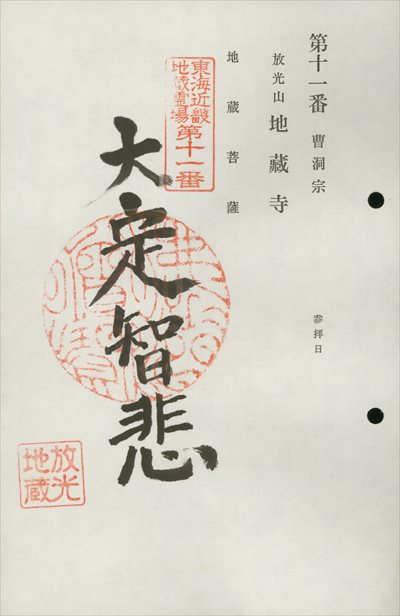 第十一番 曹洞宗
放光山 地蔵寺
参拝日
地蔵菩薩
東海近畿
地蔵霊場
第十一番
大定智悲
放光
地蔵